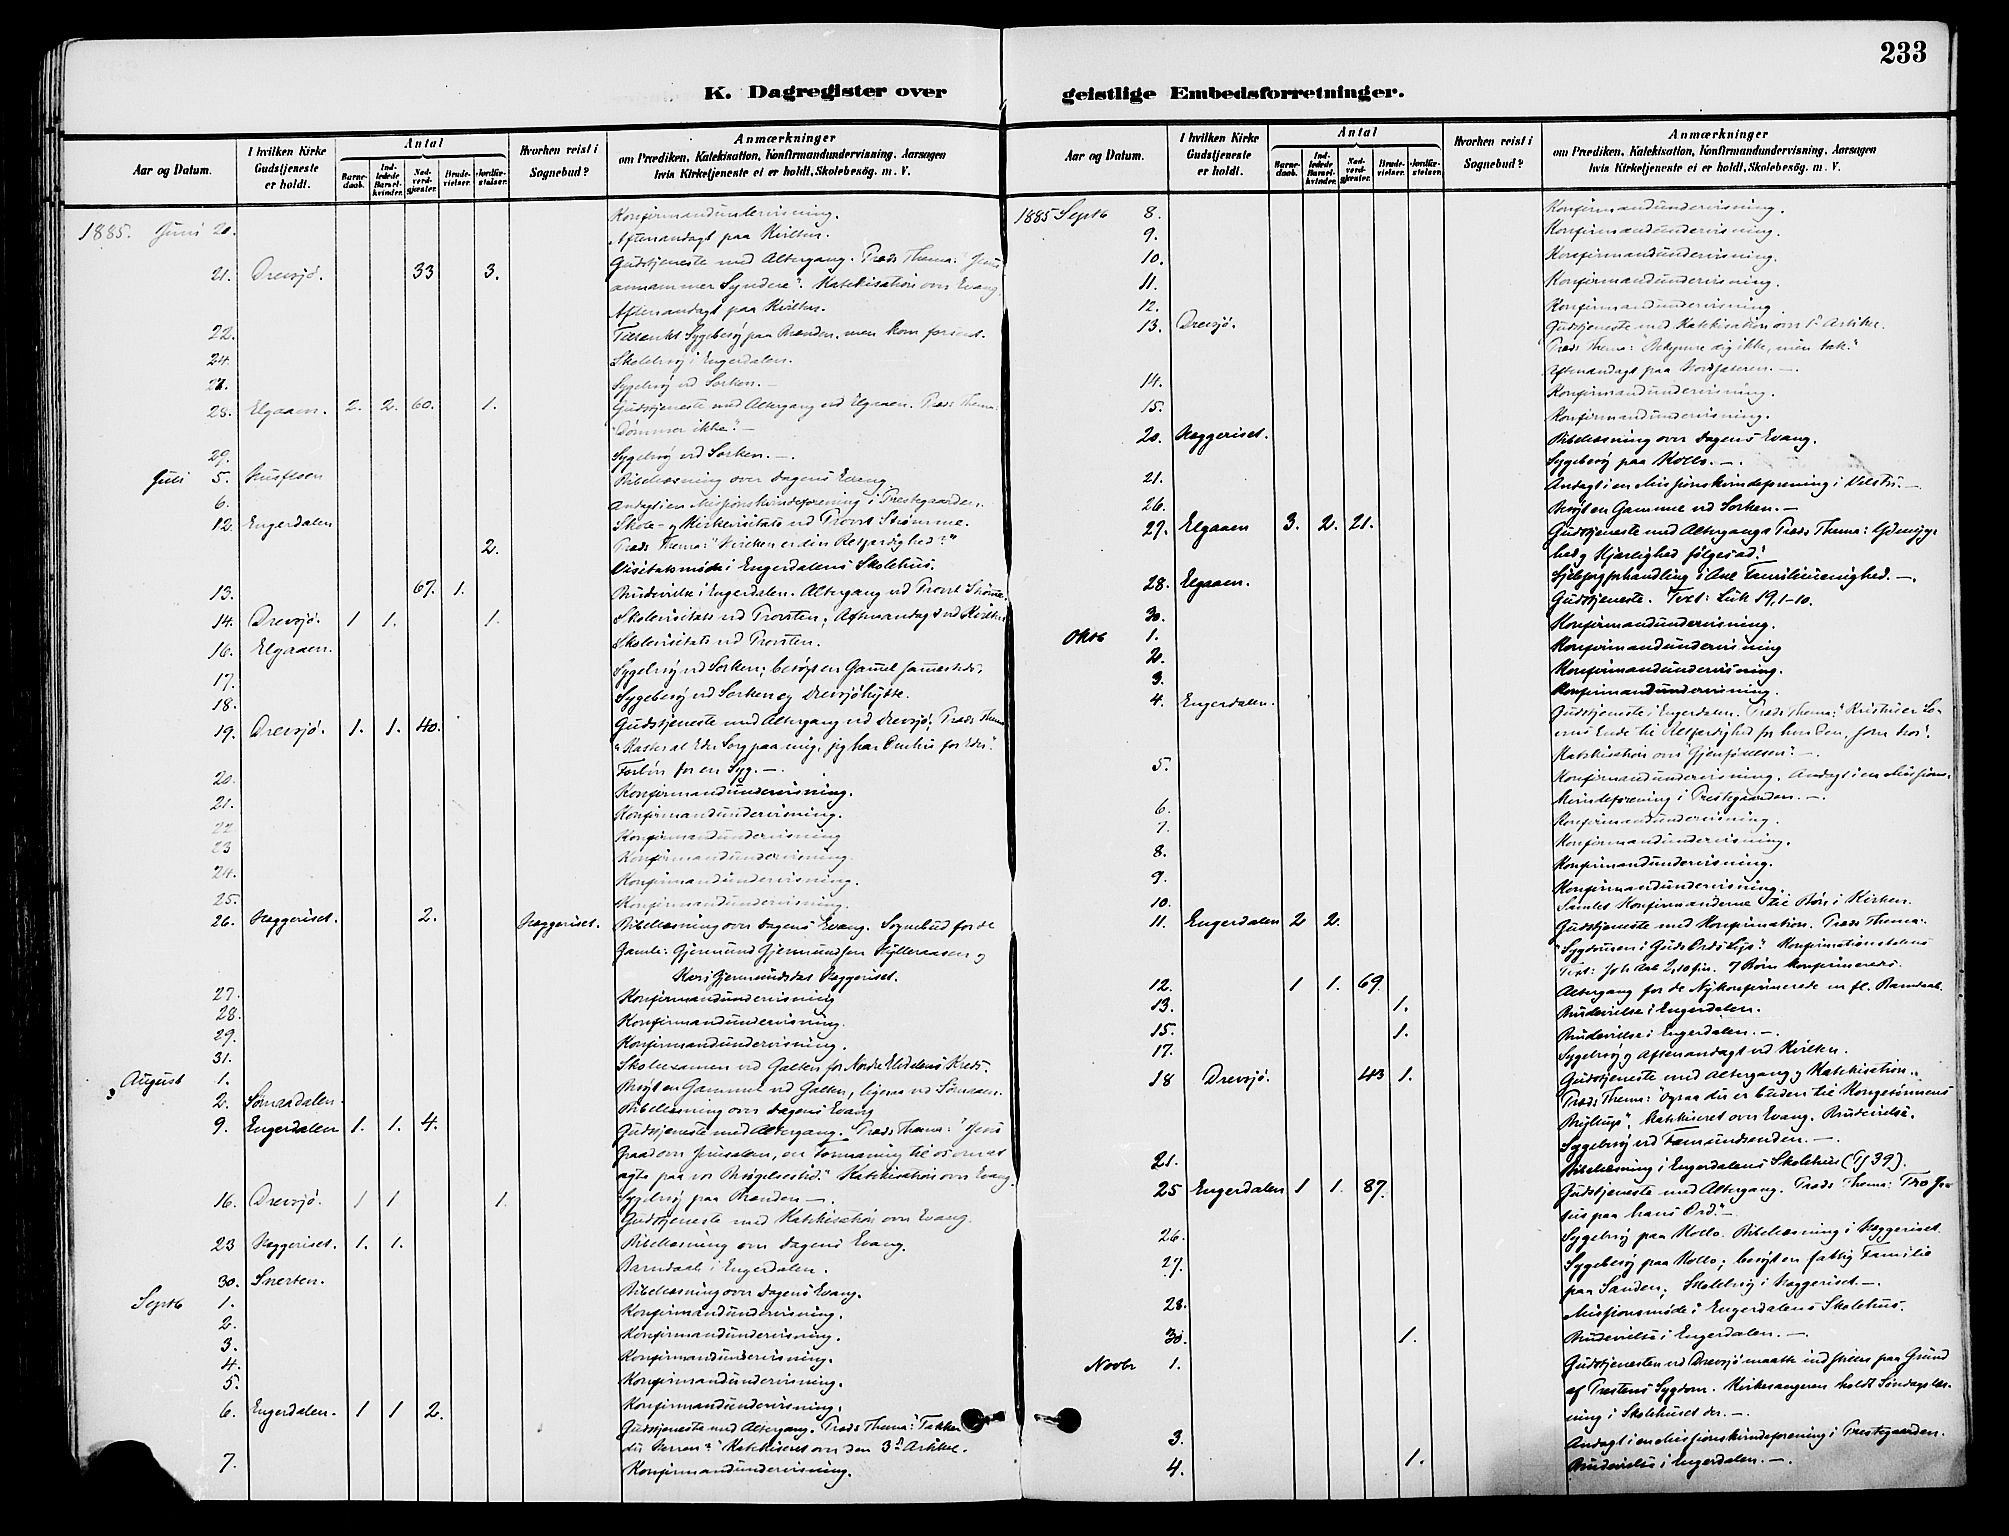 233
K. Dagregister over geistlige Embedsforretninger.
Aar og Datum.
I hvilken Kirke Gudstjeneste er holdt.
Antal
Barne-daab.
Ind-ledede Barsel-kvinder.
Nad-verd-gjester.
Brude-vielser.
Jordfæ-stelser.
Hvorhen reist i Sognebud?
Anmærkninger
om Prædiken, Katekisation, Konfirmandundervisning, Aarsagen
hvis Kirketjeneste ei er holdt, Skolebesøg. m. V.
1885. Juni 20. Konfirmandundervisning.
Aftenandagt paa Kvilten.
21. Drevsjø. 33 3. Gudstjeneste med Altergang. Præds Thema: "Jesus
annammer Syndere". Katekisation over Evang.
Aftenandagt paa Kvilten.
22. Sygebesøg paa Brænden, men kom forsent.
24. Skolebesøg i Engerdalen.
Sygebesøg ved Sorken. —
28. Elgaaen. 2. 2. 60. 1. Gudstjeneste med Altergang ved Elgaaen. Præds Thema:
"Dømmer ikke". —
29. Sygebesøg ved Sorken. —.
Juli 5. Husfloen Bibellæsning over Dagens Evang.
6. Andagt i en Missionskvindeforening i Prestegaarden.
12. Engerdalen Skole- og Kirkevisitats ved Provst Strømme.
2. Præds Thema: "Hvirken er din Retfærdighed?"
Visitatsmøde i Engerdalens Skolehus.
13. 67. 1. Brudevielse i Engerdalen. Altergang ved Provst Strømme.
14. Drevsjø. 1 1. 1. Skolevisitats ved Provsten. Aftenandagt ved Kvilten
16. Elgaaen. Skolevisitats ved Provsten.
17. Sygebesøg ved Sorken; besøgt en Gammel sammesteds.
18. Sygebesøg ved Sorken og Drevsjøhytte.
19. Drevsjø. 1. 1. 40. Gudstjeneste med Altergang ved Drevsjø. Præds Thema
"Kaster al Eders Sorg paa mig, jeg har Omhu for Eder".
Forbøn for en Syg. —.
20. Konfirmandundervisning.
21. Konfirmandundervisning.
22 Konfirmandundervisning
23 Konfirmandundervisning.
24. Konfirmandundervisning.
25. Konfirmandundervisning.
26. Hæggeriset. 2. Hæggeriset. Bibellæsning over Dagens Evang. Sognebud for de
Gamle: Gjermund Gjermundsen Hylleraasen og
Kari Gjermundsdat Hæggeriset.
27. Konfirmandundervisning
28. Konfirmandundervisning.
29. Konfirmandundervisning.
31. Skoleexamen ved Galten for Nordre Kreds.
August 1. Besøgt en Gammel ved Galten, ligesaa ved Sømaaen.
2. Sømaadalen. Bibellæsning over Dagens Evang
9. Engerdalen 1. 1. 4. Gudstjeneste med Altergang. Præds Thema: "Jesu
Graad over Jerusalem, en Formaning til os om at
agte paa vor Besøgelsestid." Katekisation over Evang.
Sygebesøg paa Brænden —.
16. Drevsjø. 1 1 1. Gudstjeneste med Katekisation over Evang.
23 Hæggeriset. 1. 1. Bibellæsning over Dagens Evang.
Barnedaab i Engerdalen.
30. Snerten. Bibellæsning over Dagens Evang.
Septb 1. Konfirmandundervisning.
2. Konfirmandundervisning.
3. Konfirmandundervisning.
4. Konfirmandundervisning.
5. Konfirmandundervisning.
6. Engerdalen. 1 1 2. Gudstjeneste med Altergang. Præds Thema: "Takker
du Herren?" Katekiseret over den 3d Artikel.
7. Konfirmandundervisning.
Aar og Datum.
I hvilken Kirke Gudstjeneste er holdt.
Antal
Barne-daab.
Ind-ledede Barsel-kvinder.
Nad-verd-gjester.
Brude-vielser.
Jordfæ-stelser.
Hvorhen reist i Sognebud?
Anmærkninger
om Prædiken, Katekisation, Konfirmandundervisning, Aarsagen
hvis Kirketjeneste ei er holdt, Skolebesøg. m. V.
1885 Septb 8. Konfirmandundervisning.
9. Konfirmandundervisning.
10. Konfirmandundervisning.
11. Konfirmandundervisning.
12. Konfirmandundervisning
13. Drevsjø. Gudstjeneste med Katekisation over 1ste Artikel.
Præds Thema: "Bekymre dig ikke, men tak."
Aftenandagt paa Nordsæteren. —.
14. Konfirmandundervisning.
15. Konfirmandundervisning.
20. Hæggeriset. Bibellæsning over Dagens Evang.
Sygebesøg paa Kollo. —.
21. Andagt i en Missionskvindeforening i —.
26. Besøgt en Gammel ved Sorken. —
27. Elgaaen 3. 2. 21. Gudstjeneste med Altergang. Præds Thema: Ydmyg-
hed og Kjærlighed følges ad!
Sjælesorgsbehandling i Anl Familieuenighed. —.
28. Elgaaen. Gudstjeneste. Text: Luk 19, 1-10.
30. Konfirmandundervisning.
Oktb 1. Konfirmandundervisning
2. Konfirmandundervisning.
3. Konfirmandundervisning.
4. Engerdalen. Gudstjeneste i Engerdalen. Præds Thema: "Kristus er Lo-
vens Ende til Retfærdighed for hver Den, som tror".
Katekisation over "Gjenfødelsen". —.
5. Konfirmandundervisning. Andagt i en Missions-
kvindeforening i Prestegaarden. —.
6. Konfirmandundervisning.
7. Konfirmandundervisning.
8. Konfirmandundervisning.
9. Konfirmandundervisning.
10. Samlet Konfirmanderne til Bøn i Kirken.
11. Engerdalen 2 2. Gudstjeneste med Konfirmation. Præds Thema:
"Sygdommen i Guds Ords Lys." Konfirmationstalens
Text: Joh. Aab 2, 10 fin. 7 Børn konfirmeredes.
12. 1 1. 69. Altergang for de Nykonfirmerede m fl. Barnedaab.
13. 1. Brudevielse i Engerdalen.
15. 1. Brudevielse i Engerdalen. —.
17. Sygebesøg og Aftenandagt ved Kvilten.
18 Drevsjø. 43 1. Gudstjeneste med Altergang og Katekisation.
Præds Thema: Ogsaa du er buden til Kongesønnens
Bryllup". Katekiseret over Evang. Brudevielse.
Sygebesøg ved Fæmundsenden. —.
21. Bibellæsning i Engerdalens Skolehus (39).
25 Engerdalen 1 1. 87. Gudstjeneste med Altergang. Præds Thema: Tro Je-
sus paa hans Ord." —
26. Sygebesøg paa Kollo. Bibellæsning i Hæggeriset.
27. Sygebesøg paa Kollo; besøgt en fattig Familie
paa Sanden; Skolebesøg i Hæggeriset. —.
28. Missionsmøde i Engerdalens Skolehus.
30. 1. Brudevielse i Engerdalen. —
Novbr 1. Gudstjenesten ved Drevsjø maatte indstilles paa Grund
af Prestens Sygdom. Kirkesangeren holdt Søndagslæs-
ning i Skolehuset der. —.
3. Andagt i en Missionskvindeforening i Prestegaarden.
4. 1. Brudevielse i Engerdalen. —.